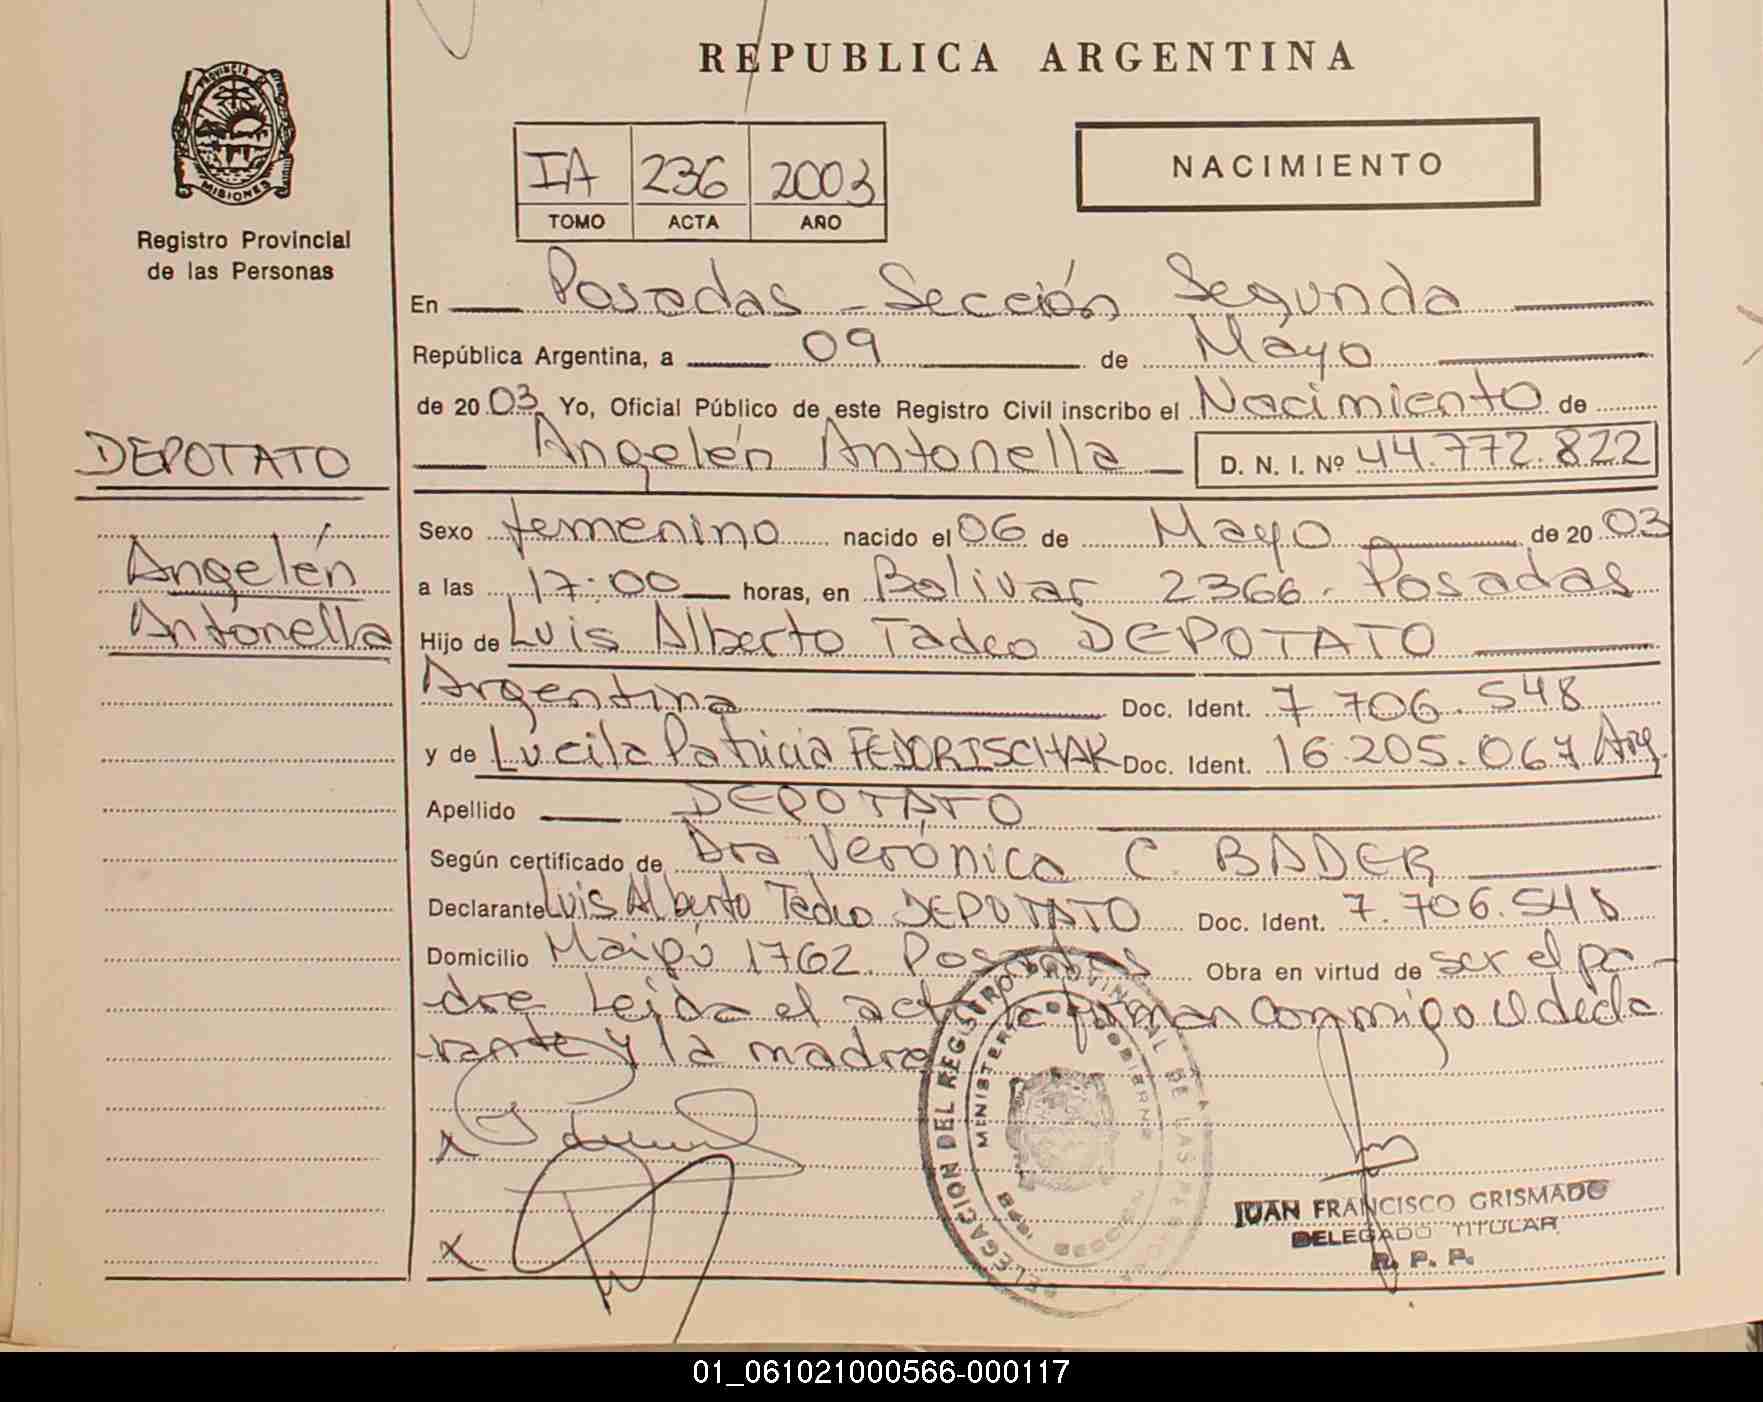 REPUBLICA ARGENTINA
PROVINCIA
MISIONES
Registro Provincial
de las Personas
IA 236 2003
TOMO ACTA AÑO
NACIMIENTO
En Posadas - Sección Segunda
República Argentina, a 09 de Mayo
de 2003 Yo, Oficial Público de este Registro Civil inscribo el Nacimiento de
Angelén Antonella D. N. I. Nº 44.772.822
DEPOTATO
Angelén
Antonella
Sexo femenino nacido el 06 de Mayo de 2003
a las 17:00 horas, en Bolivar 2366. Posadas
Hijo de Luis Alberto Tadeo DEPOTATO
Argentina Doc. Ident. 7.706.548
y de Lucila Patricia FEDORISCHAK Doc. Ident. 16.205.067 Arg.
Apellido DEPOTATO
Según certificado de Dra Verónica C. BADER
Declarante Luis Alberto Tadeo DEPOTATO Doc. Ident. 7.706.548
Domicilio Maipú 1762. Posadas Obra en virtud de ser el pa-
dre Leida el acta la firman conmigo el decla
rante y la madre
DELEGACION DEL REGISTRO PROVINCIAL DE LAS PERSONAS
MINISTERIO GOBIERNO
x
x
JUAN FRANCISCO GRISMADO
DELEGADO TITULAR
R. P. P.
01_061021000566-000117